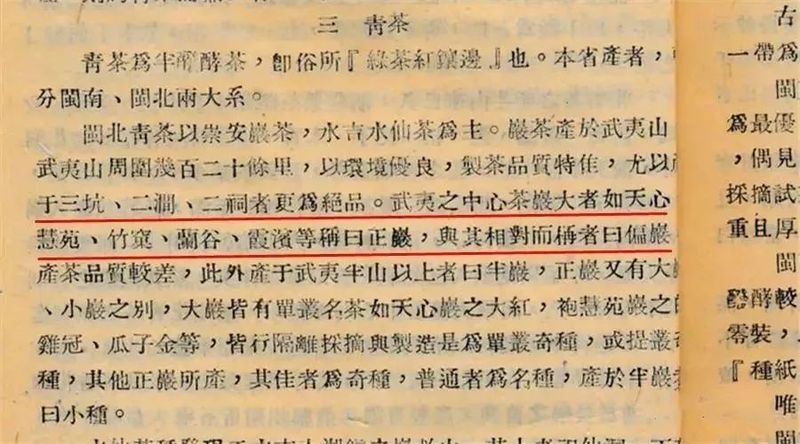 三 靑茶
靑茶爲半醱酵茶，卽俗所『綠茶紅鑲邊』也。本省產者，
分閩南、閩北兩大系。
閩北靑茶以崇安巖茶，水吉水仙茶爲主。巖茶產於武夷山
武夷山周圍幾百二十餘里，以環境優良，製茶品質特佳，尤以產
于三坑、二澗、二祠者更爲絕品。武夷之中心茶巖大者如天心
慧苑、竹窠、蘭谷、霞濱等稱曰正巖，與其相對而稱者曰偏巖
產茶品質較差，此外產于武夷半山以上者曰半巖，正巖又有大
、小巖之別，大巖皆有單叢名茶如天心巖之大紅，袍慧苑巖之
雞冠、瓜子金等，皆行隔離採摘與製造是爲單叢奇種，或提叢
種，其他正巖所產，其佳者爲奇種，普通者爲名種，產於半巖
曰小種。
古
一帶爲
閩
爲最優
，偶見
採摘試
重且厚
閩
醱酵較
零裝，
『種紙
唯